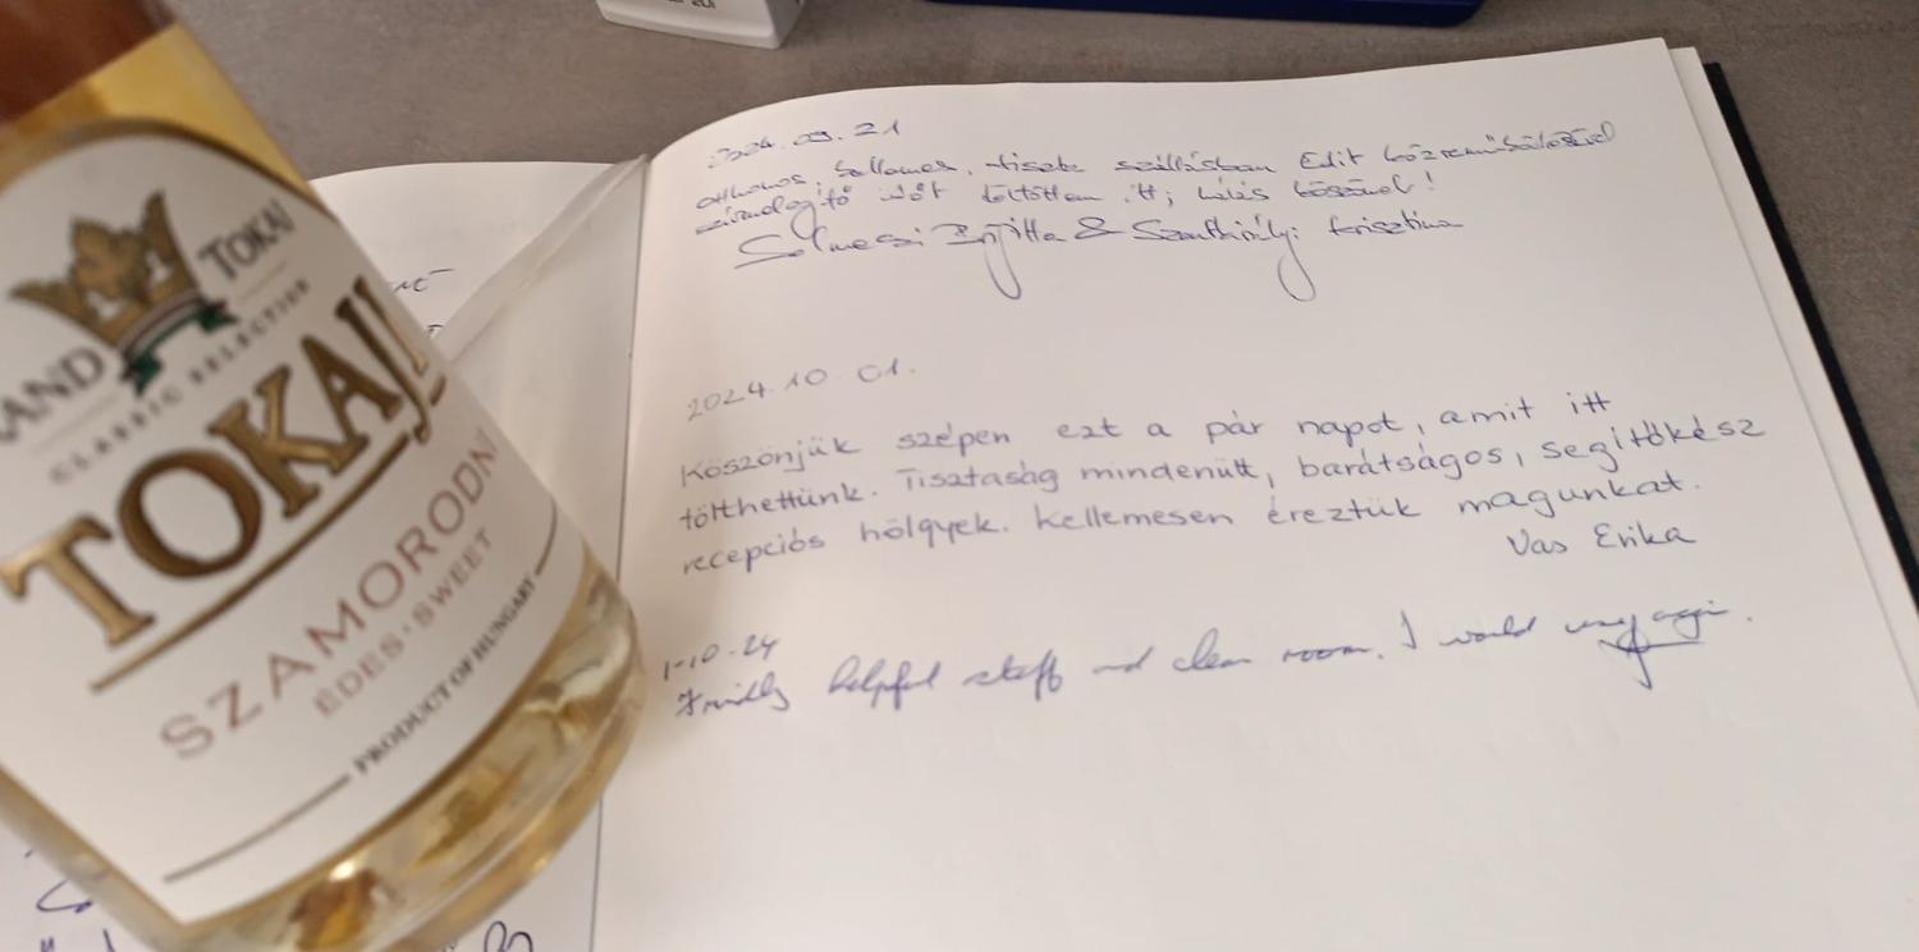 TOKAJ
CLASSIC SELECTION
TOKAJI
SZAMORODNI
ÉDES · SWEET
PRODUCT OF HUNGARY
2024. 09. 21
otthonos, kellemes, tiszta szállásban Edit közreműködésével
időt töltöttem itt; hálás köszönet!
Solmesi & Krisztina
2024. 10 01.
Köszönjük szépen ezt a pár napot, amit itt
tölthettünk. Tisztaság mindenütt, barátságos, segítőkész
recepciós hölgyek. Kellemesen éreztük magunkat.
Vas Erika
1-10-24
Friendly helpful staff and clean room. I would